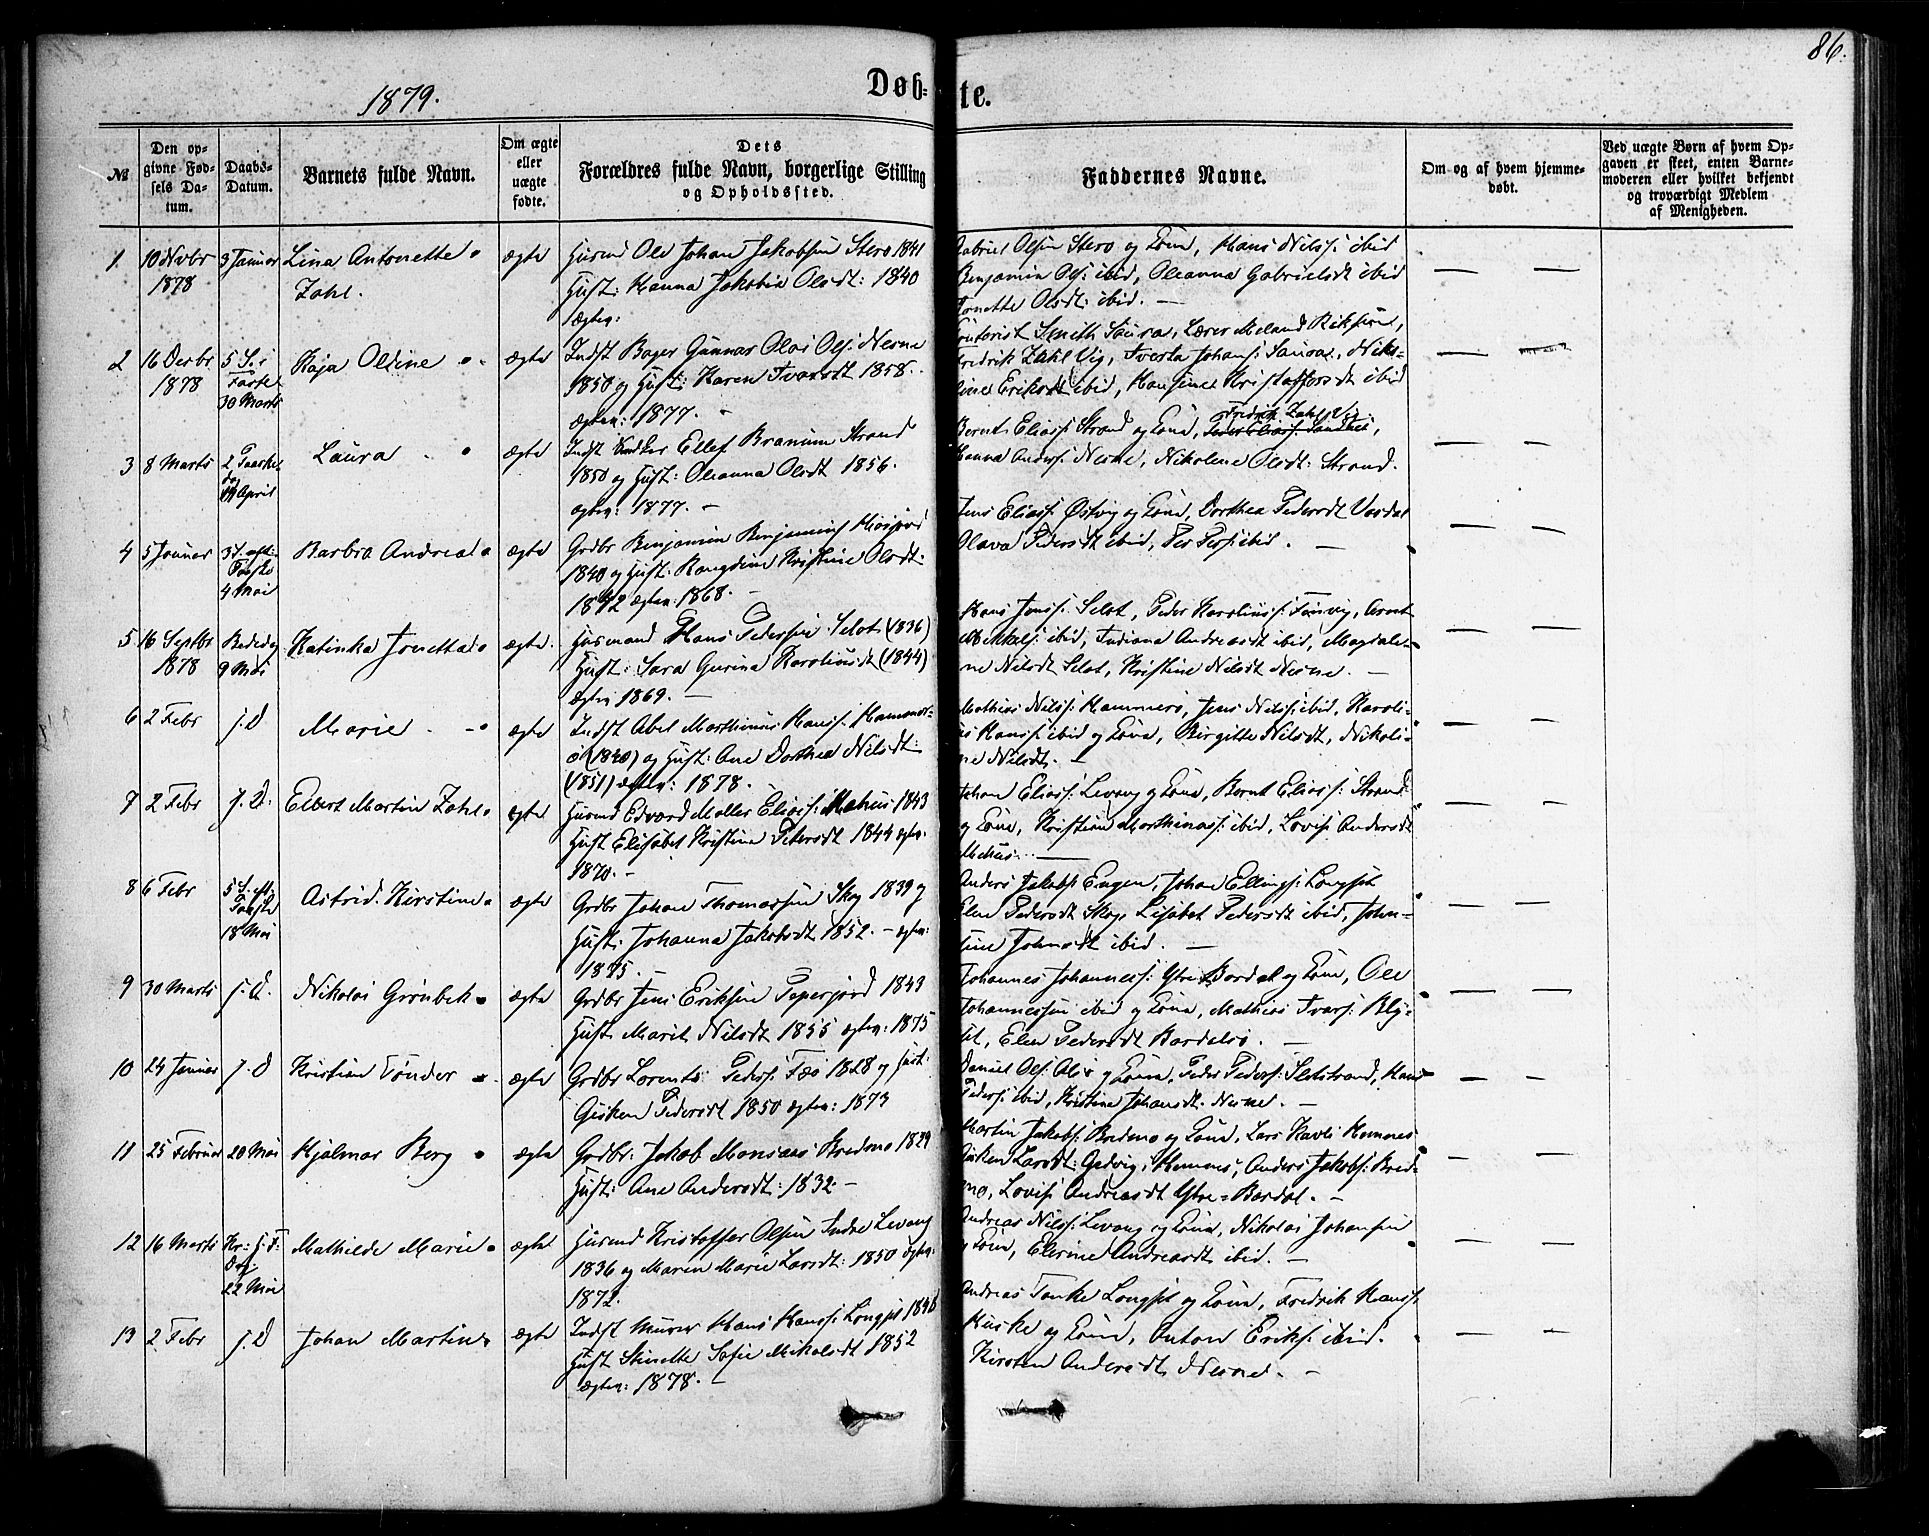 86.
1879.
Døb-te.
№
Den opgivne Fødsels Datum.
Daabs-Datum.
Barnets fulde Navn.
Om ægte eller uægte fødte.
Dets Forældres fulde Navn, borgerlige Stilling og Opholdssted.
Faddernes Navne.
Om og af hvem hjemmedøbt.
Ved uægte Børn af hvem Opgaven er skeet, enten Barnemoderen eller hvilket bekjendt og troværdigt Medlem af Menigheden.
1 10 Novbr 3 Januar Lina Antonette ægte Husmd Ole Johan Jakobsen Stero 1841
1878 Zahl. Hust: Hanna Jakobia Olsdt: 1840
ægtev:
Gabriel Olsen Stero og Kone, Hans Nilss: ibid
Benjamin Ols: ibid, Oleanna Gabrielsdt ibid
Jonette Olsdt: ibid. —
2 16 Decbr 5 S. i Kaja Oldine ægte Indst Bager Gunnar Olai Ols: Nesne
1878 Faste 1850 og Hust: Karen Ivarsdt 1858.
30 Marts ægtev: 1877. —
Smith Saura, Lærer Meland
Fredrik Zahl Vig, Johans: Saura,
Eriksdt ibid, Hansine Kristoffersdt ibid
3 8 Marts 2 Paaskedag Laura ægte Indst Ellef Strand
14 April 1850 og Hust: Oleanna Olsdt 1856.
ægtev: 1877. —
Bernt Eliass: Strand og Kone, Fredrik Zahl Vig
Peder Eliass: Sandnes,
Hanna Anders: Nesne, Nikolene Olsdt: Strand.
4 5 Januar 3 S. eft: Barbra Andrea ægte Grdbr Benjamin Benjamins:
Paaske 1840 og Hust: Kristine Olsdt.
4 Mai 1842 ægtev: 1868. —
Jens Eliass: Østvig og Kone, Dorthea Pedersdt
Olava Pedersdt ibid, Per Pers: ibid. —
5 16 Septbr Bededag Katinka Jonetta ægte. Husmand Hans Pedersen Selot (1836)
1878 9 Mai Hust: Sara Gurina Karoliusdt (1844)
ægtev 1869. —
Hans Jenss: Selot, Peder Karoliuss: Finvig, Arnt
Mikkels: ibid, Indiana Andreasdt ibid, Magdale-
ne Nilsdt Selot, Kristine Nilsdt Nesne. —
6 2 Febr j. D Marie ægte Indst Abel Marthinus Hanss: Hammer-
ø (1840) og Hust: Ane Dorthea Nilsdt:
(1851) ægtev: 1878.
Mathias Nilss: Hammerø, Jens Nilss: ibid, Karoli-
us Hanss: ibid og Kone, Birgitte Nilsdt, Nikoli-
ne Nilsdt. —
7 2 Febr j. D. Elbert Martin Zahl ægte Husmd Edvard Møller Eliass: Mehus 1843
Hust Elisabet Kristina Petersdt 1844 ægtev:
1870. —
Johan Eliass: Levang og Kone, Bernt Eliass: Strand
og Kone, Kristian Marthinass: ibid, Lovise Andersdt
Mehus. —
8 6 Febr 5 S. eft: Astrid Kirstine ægte Grdbr Johan Thomassen Skog 1839 og
Paaske Hust: Johanna Jakobsdt 1852. — ægtev:
18 Mai 1875. —
Anders Jakobs: Engen, Johan Ellings: Langset
Elen Pedersdt Skog, Lisabet Pedersdt ibid, John-
sine Johnsdt ibid. —
9 30 Marts j. D. Nikolai Grønbek ægte Grdbr Jens Eriksen 1843
Hust Marit Nilsdt 1855 ægtev: 1875
Johannes Johanness: Ytre Bardal og Kone, Ole
Johannessen ibid og Kone, Mathias Ivars:
Elen Pedersdt Bardalsø. —
10 24 Januar j. D Kristian Tønder ægte Grdbr Lorents Peders: 1828 og Hust:
Gusken Pedersdt 1850 ægtev: 1873
Daniel Ols: og Kone, Peder Peders: Selstrand, Hans
Peders: ibid, Kristine Johansdt. Nesne. —
11 25 Februar 20 Mai Hjalmar Berg ægte Grdbr: Jakob Monsaas Bredmo 1829
Hust: Ane Andersdt: 1832 —
Martin Jakobs: Bredmo og Kone, Lars Havli Hemnes
Gusken Larsdt: Hemnes, Anders Jakobs: Bred-
mo, Lovise Andreasdt Ytre-Bardal. —
12 16 Marts Kr: H: F: Mathilde Marie ægte Husmd Kristoffer Olsen Indre Levang
Dag 1836 og Maren Marie Larsdt: 1850 ægtev:
22 Mai 1872.
Andreas Nilss: Levang og Kone, Nikolai Johansen
og Kone, Elerine Andreasdt ibid. —
13 2 Febr j. D Johan Martin ægte Indst Murer Hans Hanss: Langset 1848
Hust Stinette Sofie Mikalsdt 1852
ægtev: 1878. —
Andreas Tanke Langset og Kone, Fredrik Hanss:
Huske og Kone, Anton Eriks: ibid.
Kirsten Andersdt, Nesne. —